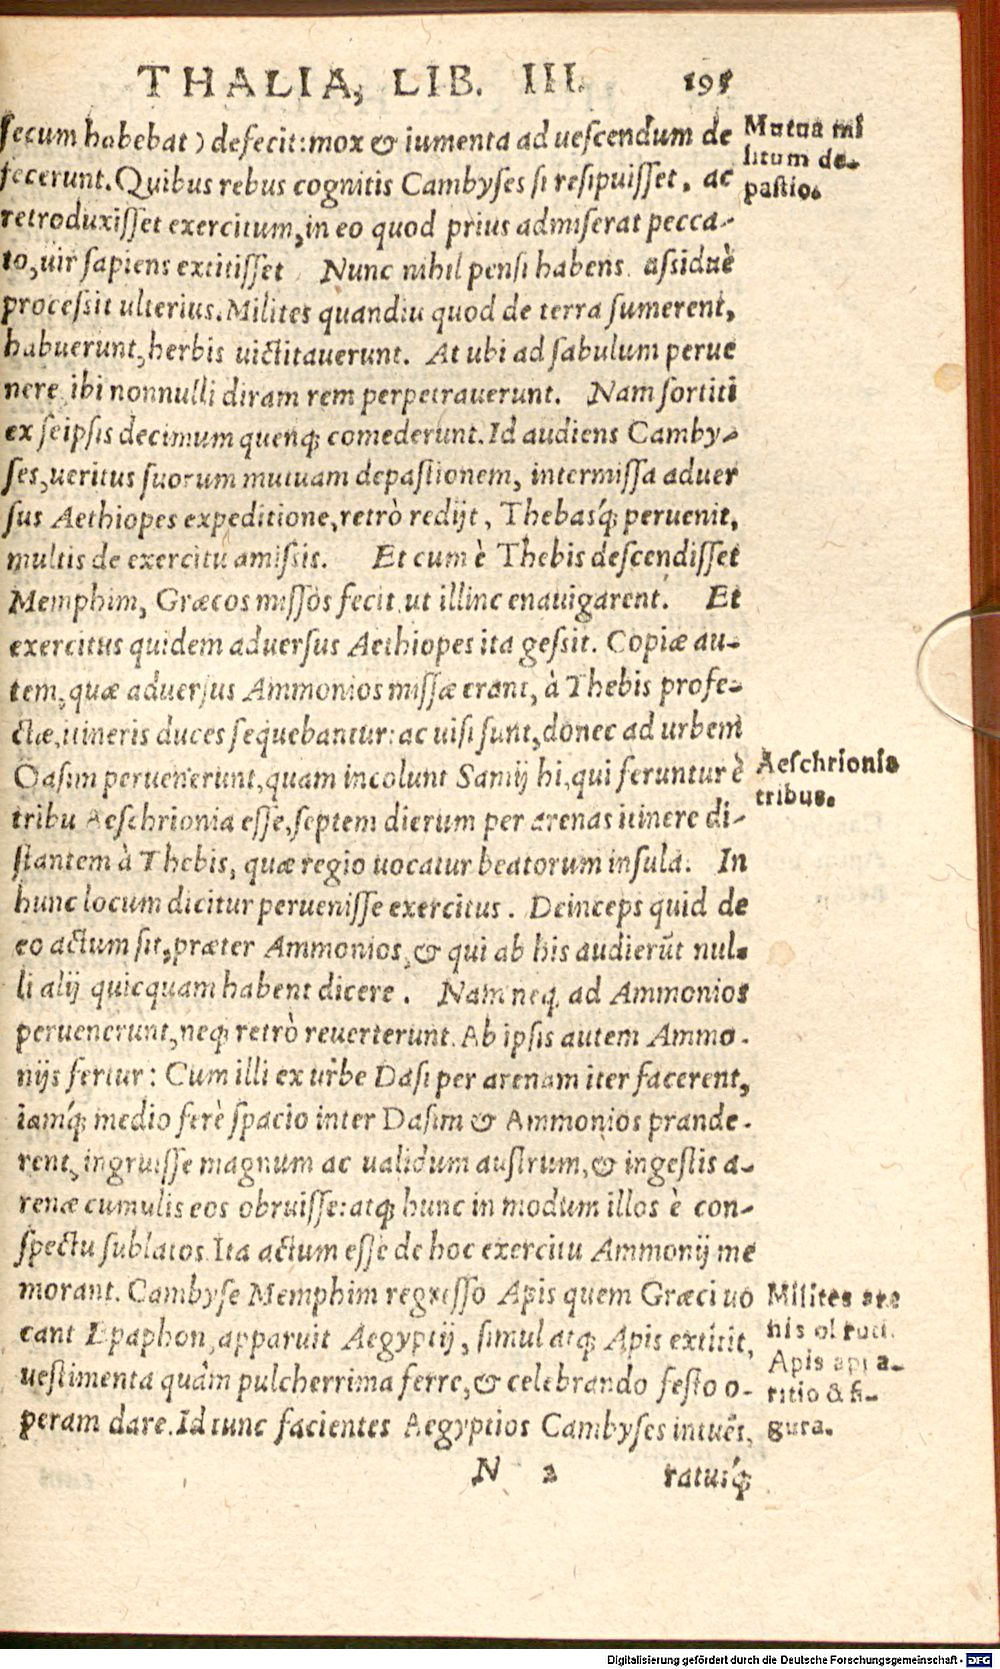 THALIA, LIB. III. 195
secum habebat) defecit: mox & iumenta ad uescendum de
fecerunt. Quibus rebus cognitis Cambyses si resipuisset, ac
retroduxisset exercitum, in eo quod prius admiserat pecca-
to, uir sapiens extitisset. Nunc nihil pensi habens assiduè
processit ulterius. Milites quandiu quod de terra sumerent,
habuerunt, herbis uictitauerunt. At ubi ad sabulum perue
nere, ibi nonnulli diram rem perpetrauerunt. Nam sortiti
ex seipsis decimum quenq; comederunt. Id audiens Camby-
ses, ueritus suorum mutuam depastionem, intermissa aduer
sus Aethiopes expeditione, retrò redijt, Thebasq́; peruenit,
multis de exercitu amissis. Et cum è Thebis descendisset
Memphim, Græcos missos fecit ut illinc enauigarent. Et
exercitus quidem aduersus Aethiopes ita gessit. Copiæ au-
tem, quæ aduersus Ammonios missæ erant, à Thebis profe-
ctæ, itineris duces sequebantur: ac uisi sunt, donec ad urbem
Oasim peruenerunt, quam incolunt Samij hi, qui feruntur è
tribu Aeschrionia esse, septem dierum per arenas itinere di-
stantem à Thebis, quæ regio uocatur beatorum insula. In
hunc locum dicitur peruenisse exercitus. Deinceps quid de
eo actum sit, præter Ammonios, & qui ab his audierūt nul-
li alij quicquam habent dicere. Nam neq; ad Ammonios
peruenerunt, neq; retrò reuerterunt. Ab ipsis autem Ammo-
nijs fertur: Cum illi ex urbe Oasi per arenam iter facerent,
iamq́; medio ferè spacio inter Oasim & Ammonios prande-
rent, ingruisse magnum ac ualidum austrum, & ingestis a-
renæ cumulis eos obruisse: atq; hunc in modum illos è con-
spectu sublatos. Ita actum esse de hoc exercitu Ammonij me
morant. Cambyse Memphim regresso Apis quem Græci uo
cant Epaphon, apparuit Aegyptij, simul atq; Apis extitit,
uestimenta quàm pulcherrima ferre, & celebrando festo o-
peram dare. Id tunc facientes Aegyptios Cambyses intuēs,
N 2 ratusq́;
Mutua mi
litum de-
pastio.
Aeschrionia
tribus.
Milites are
nis obruti.
Apis appa-
ritio & fi-
gura.
Digitalisierung gefördert durch die Deutsche Forschungsgemeinschaft - DFG